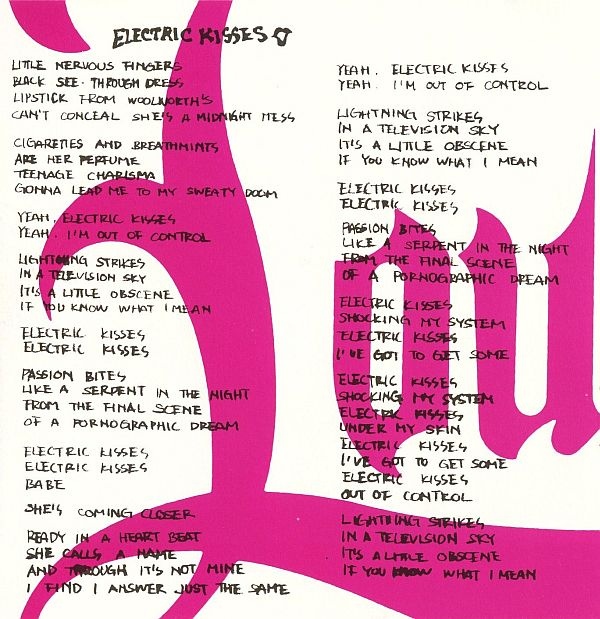 ELECTRIC KISSES
LITTLE NERVOUS FINGERS
BLACK SEE-THROUGH DRESS
LIPSTICK FROM WOOLWORTH'S
CAN'T CONCEAL SHE'S A MIDNIGHT MESS
CIGARETTES AND BREATHMINTS
ARE HER PERFUME
TEENAGE CHARISMA
GONNA LEAD ME TO MY SWEATY DOOM
YEAH, ELECTRIC KISSES
YEAH, I'M OUT OF CONTROL
LIGHTNING STRIKES
IN A TELEVISION SKY
IT'S A LITTLE OBSCENE
IF YOU KNOW WHAT I MEAN
ELECTRIC KISSES
ELECTRIC KISSES
PASSION BITES
LIKE A SERPENT IN THE NIGHT
FROM THE FINAL SCENE
OF A PORNOGRAPHIC DREAM
ELECTRIC KISSES
ELECTRIC KISSES
BABE
SHE'S COMING CLOSER
READY IN A HEART BEAT
SHE CALLS A NAME
AND THROUGH IT'S NOT MINE
I FIND I ANSWER JUST THE SAME
YEAH, ELECTRIC KISSES
YEAH, I'M OUT OF CONTROL
LIGHTNING STRIKES
IN A TELEVISION SKY
IT'S A LITTLE OBSCENE
IF YOU KNOW WHAT I MEAN
ELECTRIC KISSES
ELECTRIC KISSES
PASSION BITES
LIKE A SERPENT IN THE NIGHT
FROM THE FINAL SCENE
OF A PORNOGRAPHIC DREAM
ELECTRIC KISSES
SHOCKING MY SYSTEM
ELECTRIC KISSES
I'VE GOT TO GET SOME
ELECTRIC KISSES
SHOCKING MY SYSTEM
ELECTRIC KISSES
UNDER MY SKIN
ELECTRIC KISSES
I'VE GOT TO GET SOME
ELECTRIC KISSES
OUT OF CONTROL
LIGHTNING STRIKES
IN A TELEVISION SKY
IT'S A LITTLE OBSCENE
IF YOU KNOW WHAT I MEAN